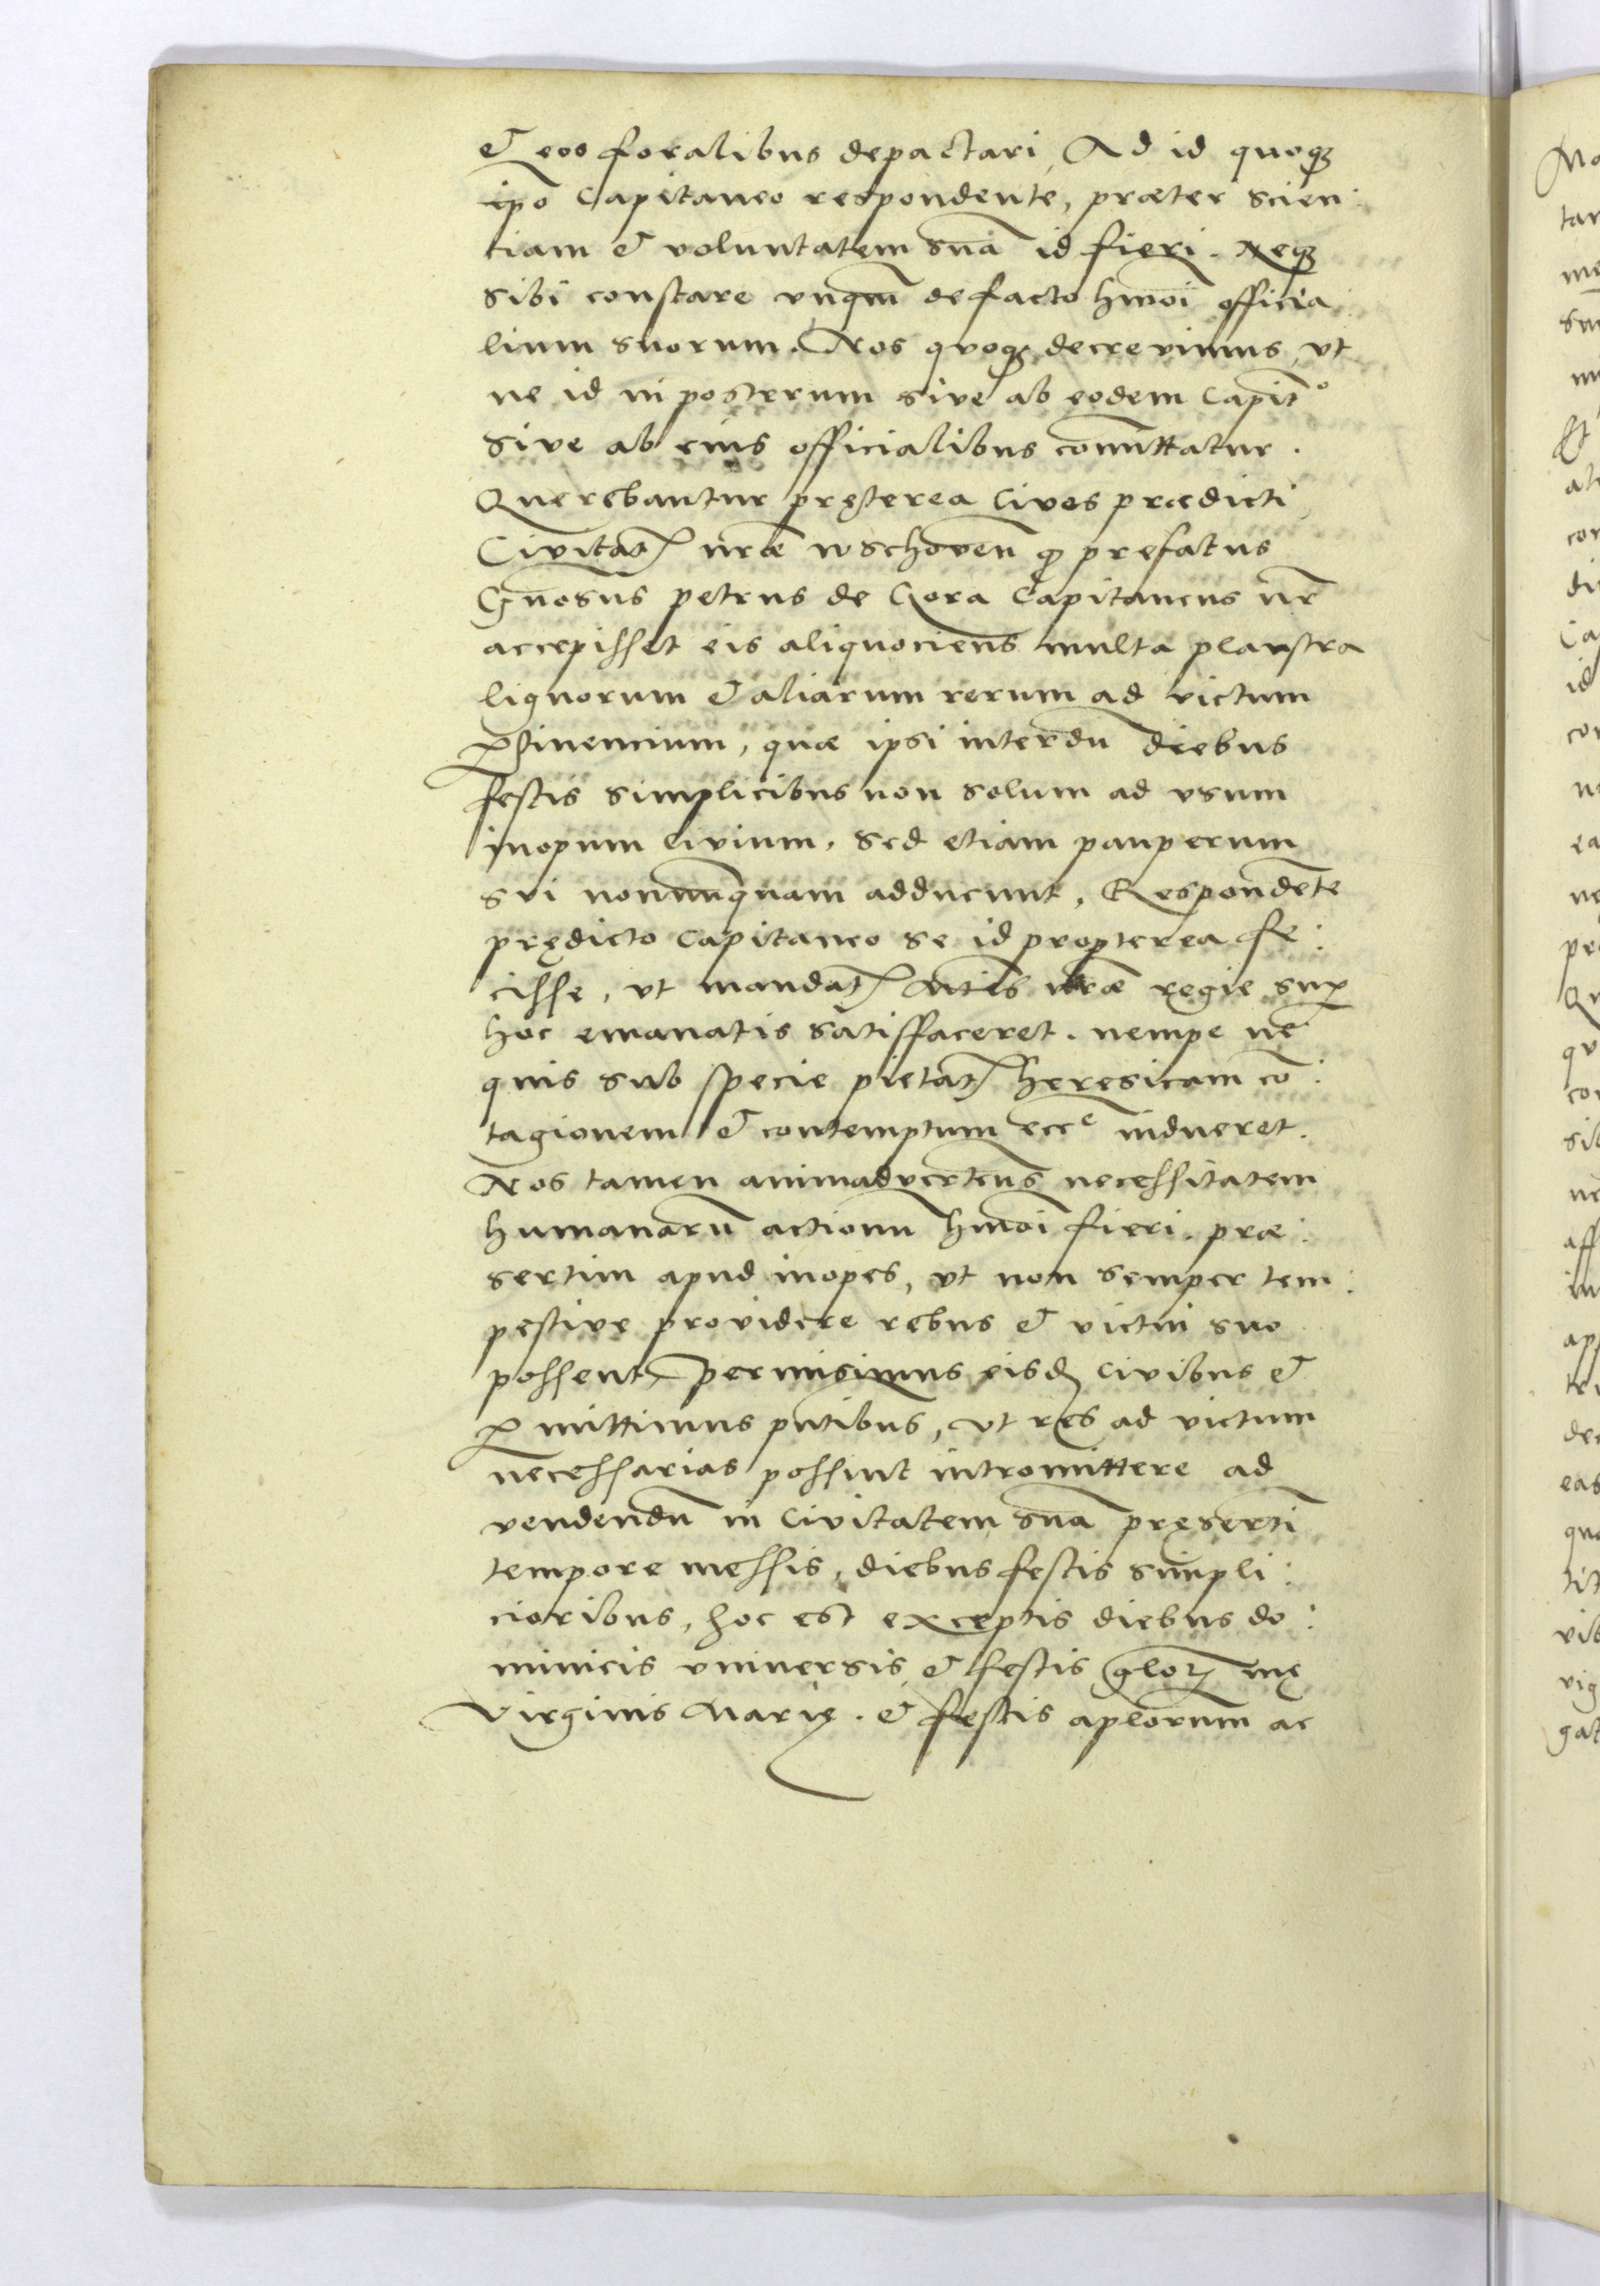 & eos foralibus depactari, Ad id quoqꝫ
ip̃o Capitaneo respondente, præter scien:
tiam & voluntatem suã id fieri. Neqꝫ
sibi constare vnqm̃ de facto hm̃oi officia
lium suorum. Nos quoqꝫ decrevimus, vt
ne id in posterum sive ab eodem Capitº
sive ab eius officialibus com̃ittatur.
Querebantur pręterea Cives prædicti
Civitatꝭ nr̃æ wschoveñ ꝙ prefatus
Gn̄osus petrus de Kora Capitaneus nr̃
accepisset eis aliquociens multa plaustra
lignorum & aliarum rerum ad victum
ꝑtinencium, quæ ipsi interdũ diebus
festis simplicibus non solum ad vsum
inopum civium, sed etiam pauperum
sui nonnunquam adducunt, Respondẽte
prędicto Capitaneo se id propterea fe:
cisse, vt mandatꝭ Mt̃is nr̃æ regie suꝑ
hoc emanatis satisfaceret. nempe ne
quis sub specie pietatꝭ heresicam cõ:
tagionem & contemptum ecc̃e indueret.
Nos tamen animadvertens necessitatem
humanarũ actionũ hm̃oi fieri. præ:
sertim apud inopes, vt non semper tem:
pestive providere rebus & victui suo
possent, permisimus eisdꝫ Civibus &
ꝑmittimus pñtibus, vt res ad victum
necessarias possint intromittere ad
vendendũ in Civitatem suã pręsertĩ
tempore messis, diebus festis simpli:
cioribus, hoc est exceptis diebus do:
minicis vniversis & festis glorꝭmę
Virginis Marię. & festis apl̃orum ac
tar
con
id
con
eas
gat